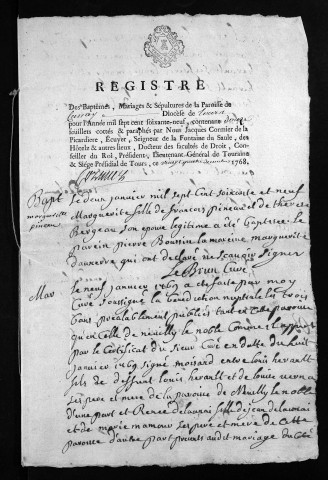 REGISTRE
Des Baptêmes, Mariages & Sépultures de la Paroisse de
Diocèse de
pour l'Année mil sept cent soixante-neuf, contenant
feuillets cottés & paraphés par Nous Jacques Cormier de la
Picardiere, Écuyer, Seigneur de la Fontaine du Saule, des
Hôtels & autres lieux, Docteur des facultés de Droit, Con-
seiller du Roi, Président, Lieutenant-Général de Touraine
& Siége Présidial de Tours, ce 1768.
Cormier
Bapt le deux janvier mil sept Cent soixante et neuf
marguerite marguerite fille de francois pineau et de therese
pineau Bergeau son epouse legitime a été baptisée. le
parein pierre Boussin la mareine marguerite
qui ont declaré ne sçavoir signer
Le Brun Curé
Mar le neuf janvier 1769 a été faite par moy
Curé soussigné la benediction nuptiale les trois
bans prealablement publiés tant en cette paroisse
qu'en celle de neuilly le noble comme il appert
par le Certificat du sieur Curé en datte du huit
janvier 1769 signé moisard entre louis herault
fils de deffunt louis herault et de louise
ses pere et mere de la paroisse de Neuilly le noble
d'une part et Renée delaunai fille de jean delaunai
et de marie mamour ses pere et mere de cette
paroisse d'autre part presents audit mariage du Coté